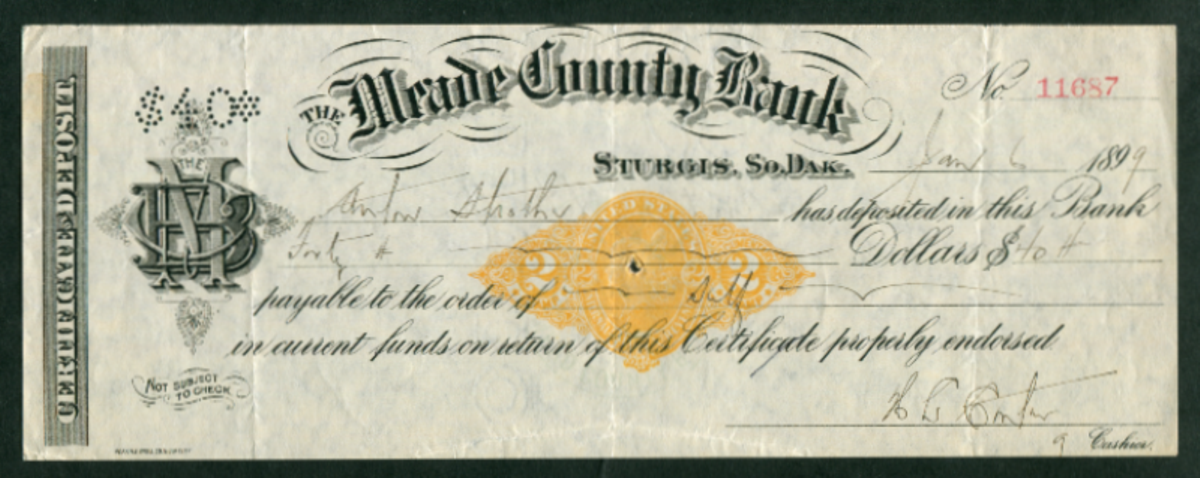 CERTIFICATE DEPOSIT
$40
THE Meade County Bank
No. 11687
STURGIS, SO. DAK. Jany 6 1899
Anton has deposited in this Bank
Forty Dollars $40
payable to the order of Self
in current funds on return of this Certificate properly endorsed
THE
MCB
UNITED STATES
2 2
NOT SUBJECT
TO CHECK
Cashier